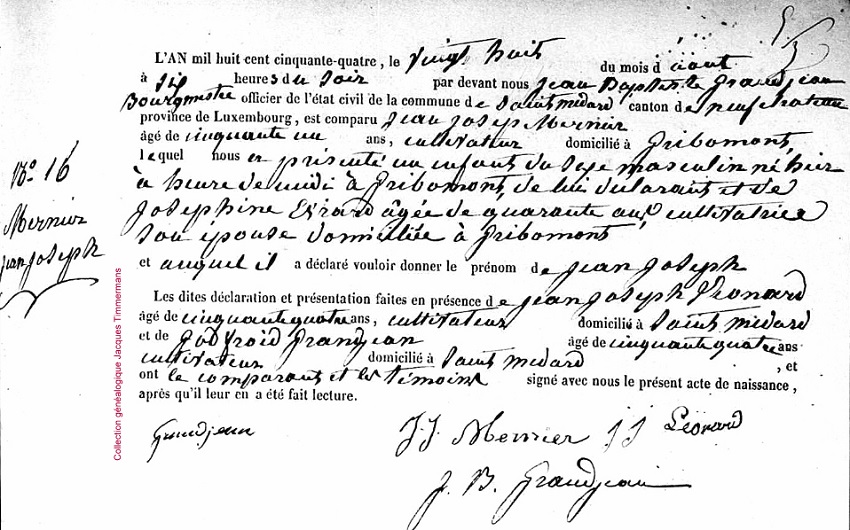 L'AN mil huit cent cinquante-quatre, le vingt huit du mois d'aout
à six heures du Soir par devant nous Jean Baptiste Grandjean
Bourgmestre officier de l'état civil de la commune de Saint médard canton de neufchateau
province de Luxembourg, est comparu Jean Joseph Mernier
âgé de cinquante un ans, cultivateur domicilié à Gribomont,
lequel nous a présenté un enfant du Sexe masculin né hier
à heure de midi à Gribomont, de lui déclarant et de
Josephine Evrard âgée de quarante ans cultivatrice
Son épouse domiciliée à Gribomont
et auquel il a déclaré vouloir donner le prénom de Jean Joseph
Les dites déclaration et présentation faites en présence de Jean Joseph Léonard
âgé de cinquante quatre ans, cultivateur domicilié à Saint médard
et de Godfroid Grandjean âgé de cinquante quatre ans
cultivateur domicilié à Saint médard, et
ont le comparant et les témoins signé avec nous le présent acte de naissance,
après qu'il leur en a été fait lecture.
N° 16
Mernier
Jean Joseph
Grandjean J. J. Mernier J J Léonard
J. B. Grandjean
Collection généalogique Jacques Timmermans